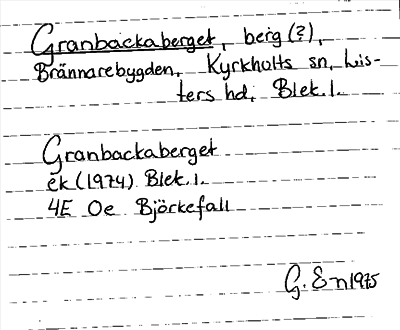 Granbackaberget, berg (?),
Brännarebygden, Kyrkhults sn, Lis-
ters hd, Blek. l.
Granbackaberget
ek (1974) Blek. l.
4E Oe Björkefall
G. En 1975